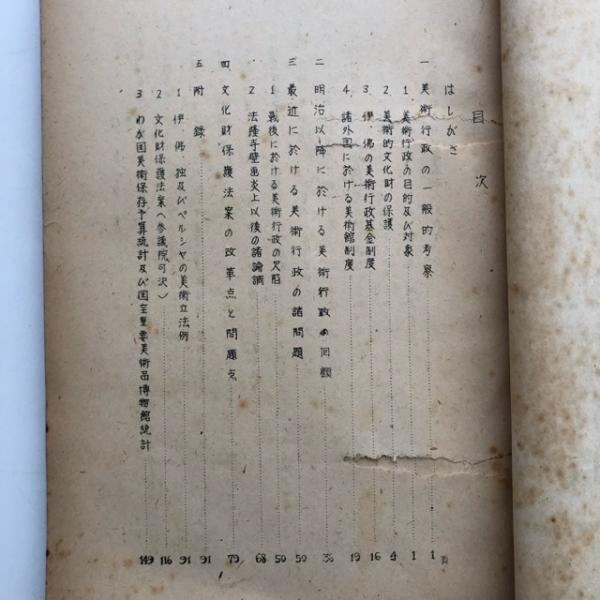 目次
はしがき 1 頁
一 美術行政の一般的考察 1
1 美術行政の目的及び対象 1
2 美術的文化財の保護 4
3 伊、佛の美術行政基金制度 16
4 諸外国に於ける美術館制度 19
二 明治以降に於ける美術行政の回顧 38
三 最近に於ける美術行政の諸問題 50
1 戦後に於ける美術行政の欠陥 50
2 法隆寺壁画炎上以後の諸論調 68
四 文化財保護法案の改革点と問題点 79
五 附録 91
1 伊、佛、独及びペルシヤの美術立法例 91
2 文化財保護法案(参議院可決) 116
3 わが国美術保存予算統計及び国宝重要美術品博物館統計 149